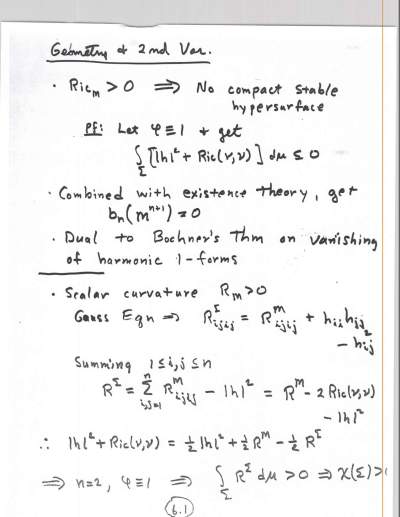 Geometry & 2nd Var.
· Ric_M > 0 ⟹ No compact stable
hypersurface
Pf: Let φ ≡ 1 + get
∫_Σ [|h|² + Ric(ν,ν)] dμ ≤ 0
· Combined with existence theory, get
b_n(M^{n+1}) = 0
· Dual to Bochner's Thm on vanishing
of harmonic 1-forms
· Scalar curvature R_M > 0
Gauss Eqn ⟹ R^Σ_{ijij} = R^M_{ijij} + h_{ii}h_{jj}
- h_{ij}²
Summing 1 ≤ i,j ≤ n
R^Σ = Σ_{i,j=1}^n R^M_{ijij} - |h|² = R^M - 2 Ric(ν,ν)
- |h|²
∴ |h|² + Ric(ν,ν) = ½|h|² + ½R^M - ½R^Σ
⟹ n=2, φ ≡ 1 ⟹ ∫_Σ R^Σ dμ > 0 ⟹ χ(Σ) >
6.1